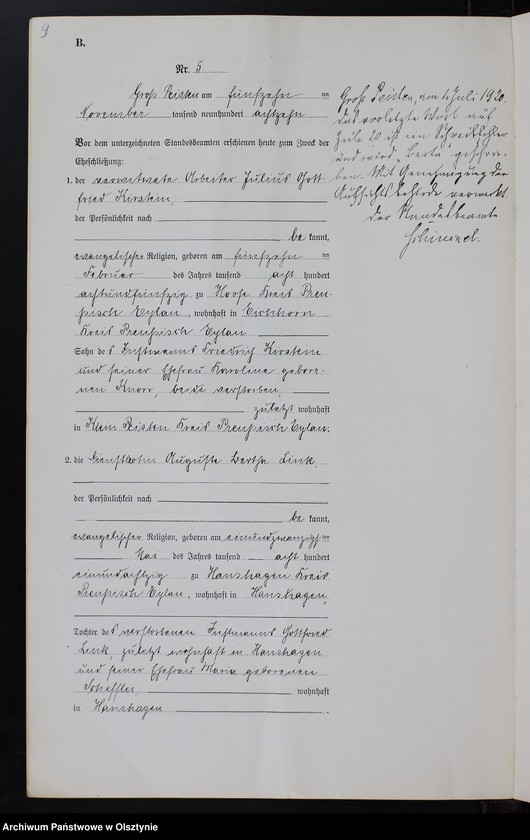 9
B.
Nr. 5
Groß Peisten am fünfzehn ten
November tausend neunhundert achtzehn
Vor dem unterzeichneten Standesbeamten erschienen heute zum Zweck der
Eheschließung:
1. der verwitwete Arbeiter Julius Gott-
fried Kirstein,
der Persönlichkeit nach
be kannt,
evangelischer Religion, geboren am fünfzehn ten
Februar des Jahres tausend acht hundert
achtundfünfzig zu Hoofe Kreis Preu-
ßisch Eylau, wohnhaft in Eichhorn
Kreis Preußisch Eylau
Sohn des Instmanns Friedrich Kirstein
und seiner Ehefrau Karoline gebore-
nen Knorr, beide verstorben,
zuletzt wohnhaft
in Klein Peisten Kreis Preußisch Eylau.
2. die Dienstbotin Auguste Bertha Link,
der Persönlichkeit nach
be kannt,
evangelischer Religion, geboren am einundzwanzigsten
Mai des Jahres tausend acht hundert
einundachtzig zu Hanshagen Kreis
Preußisch Eylau, wohnhaft in Hanshagen,
Tochter des verstorbenen Instmanns Gottfried
Link zuletzt wohnhaft in Hanshagen
und seiner Ehefrau Maria geborenen
Scheffler wohnhaft
in Hanshagen
Groß Peisten, am 1. Juli 1920.
Das vorletzte Wort auf
Zeile 20 ist ein Schreibfehler
und wird "Berta" geschrie-
ben. Mit Genehmigung der
Aufsichtsbehörde vermerkt.
Der Standesbeamte
Archiwum Państwowe w Olsztynie